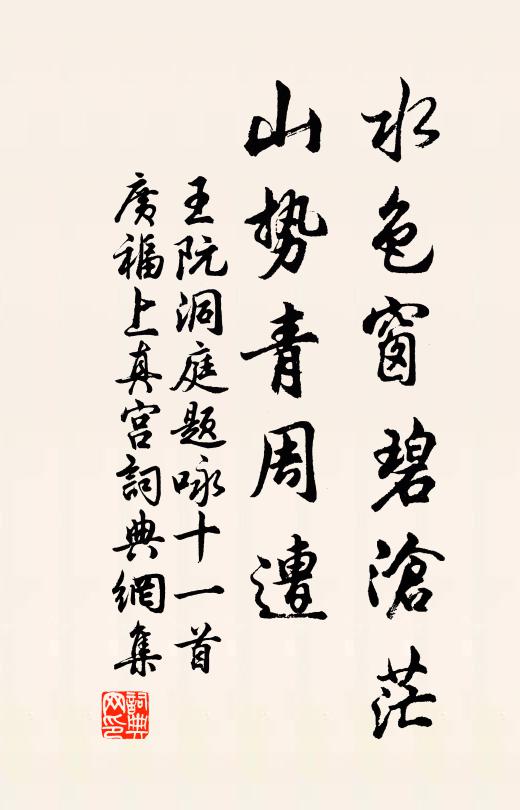 水色窗碧滄茫
山勢青周遭
王阮洞庭題咏十一首
廣福上真宮詞典網集
詞典網印